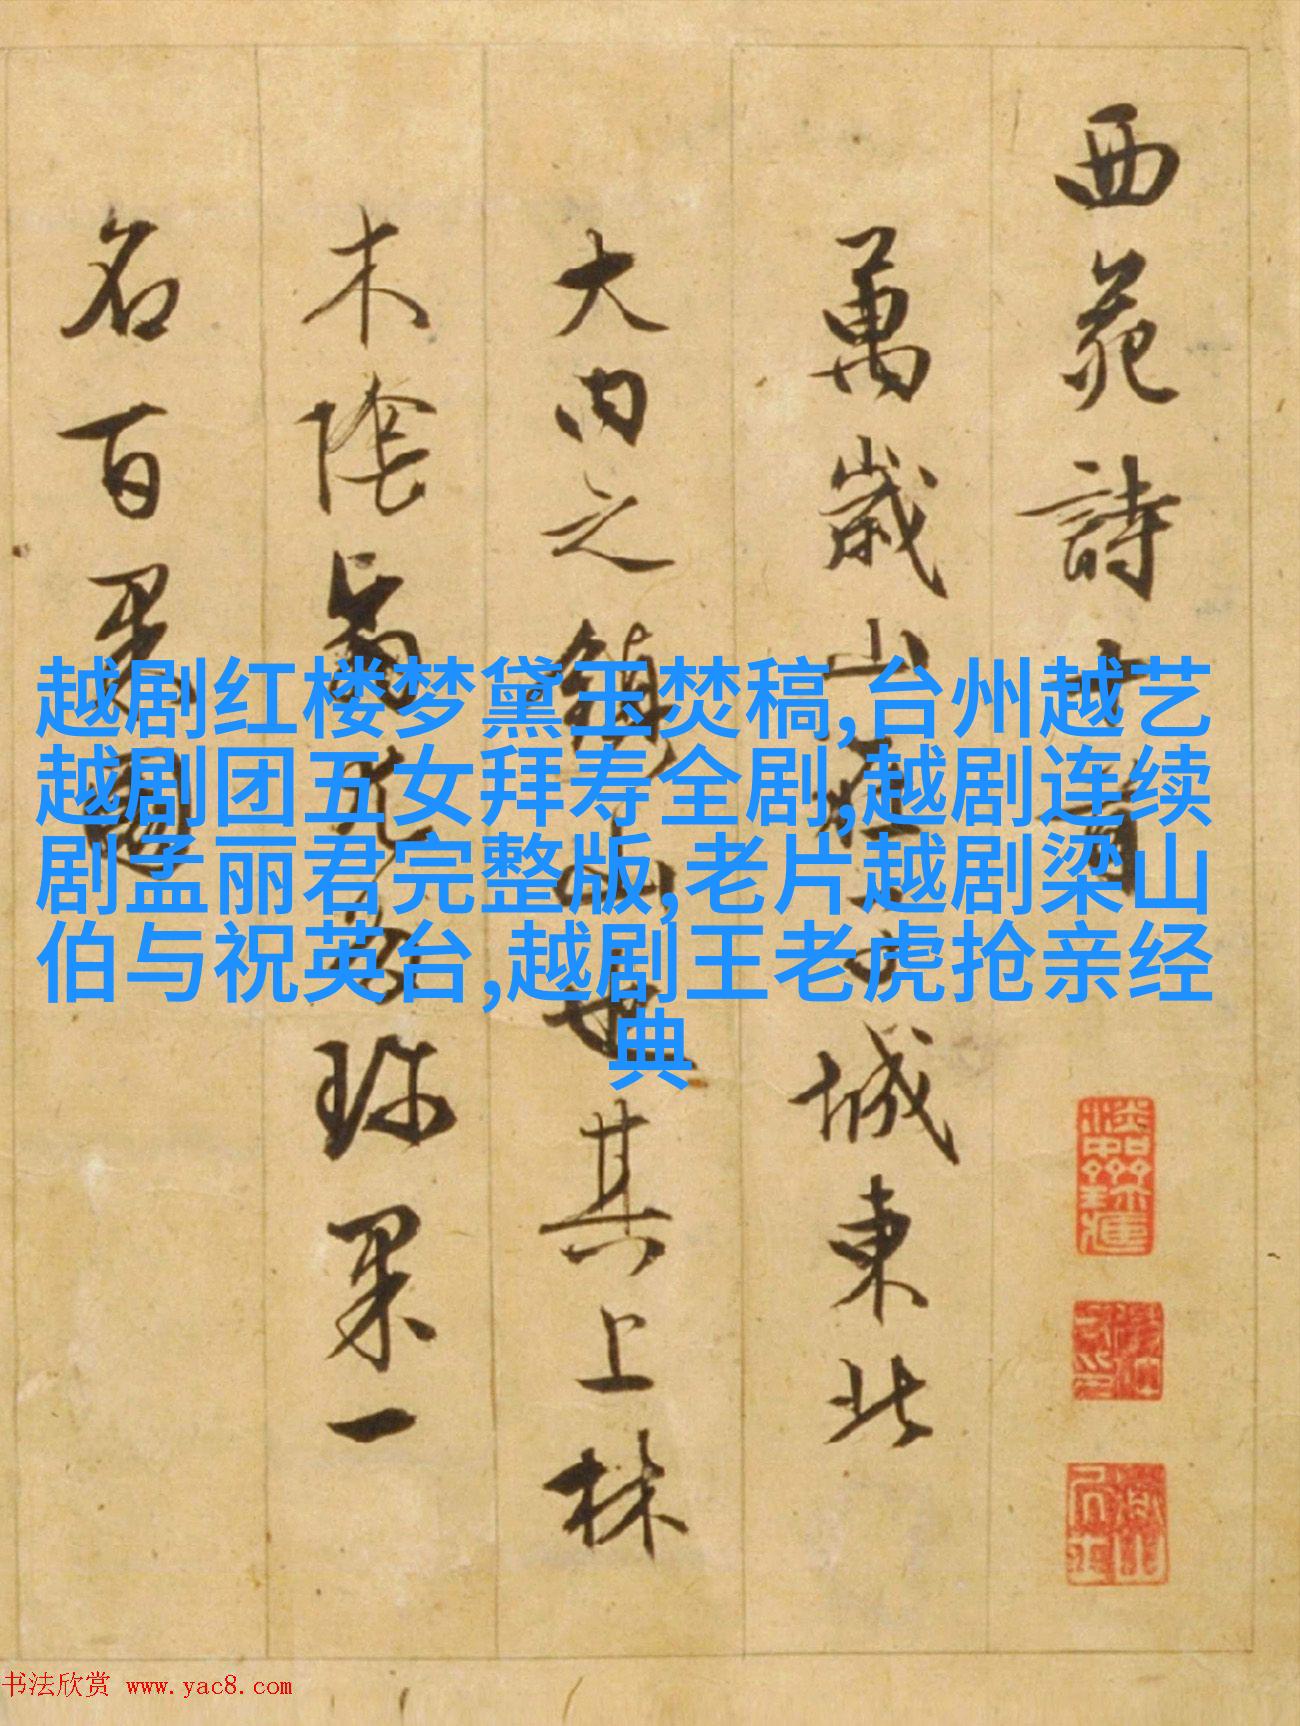 西苑詩十首
萬歲山在子城東北
大內之鎮山也其上林
木陰翳尤多珍果一
名百果園
越剧红楼梦黛玉焚稿,台州越艺
越剧团五女拜寿全剧,越剧连续
剧孟丽君完整版,老片越剧梁山
伯与祝英台,越剧王老虎抢亲经
典
书法欣赏 www.yac8.com